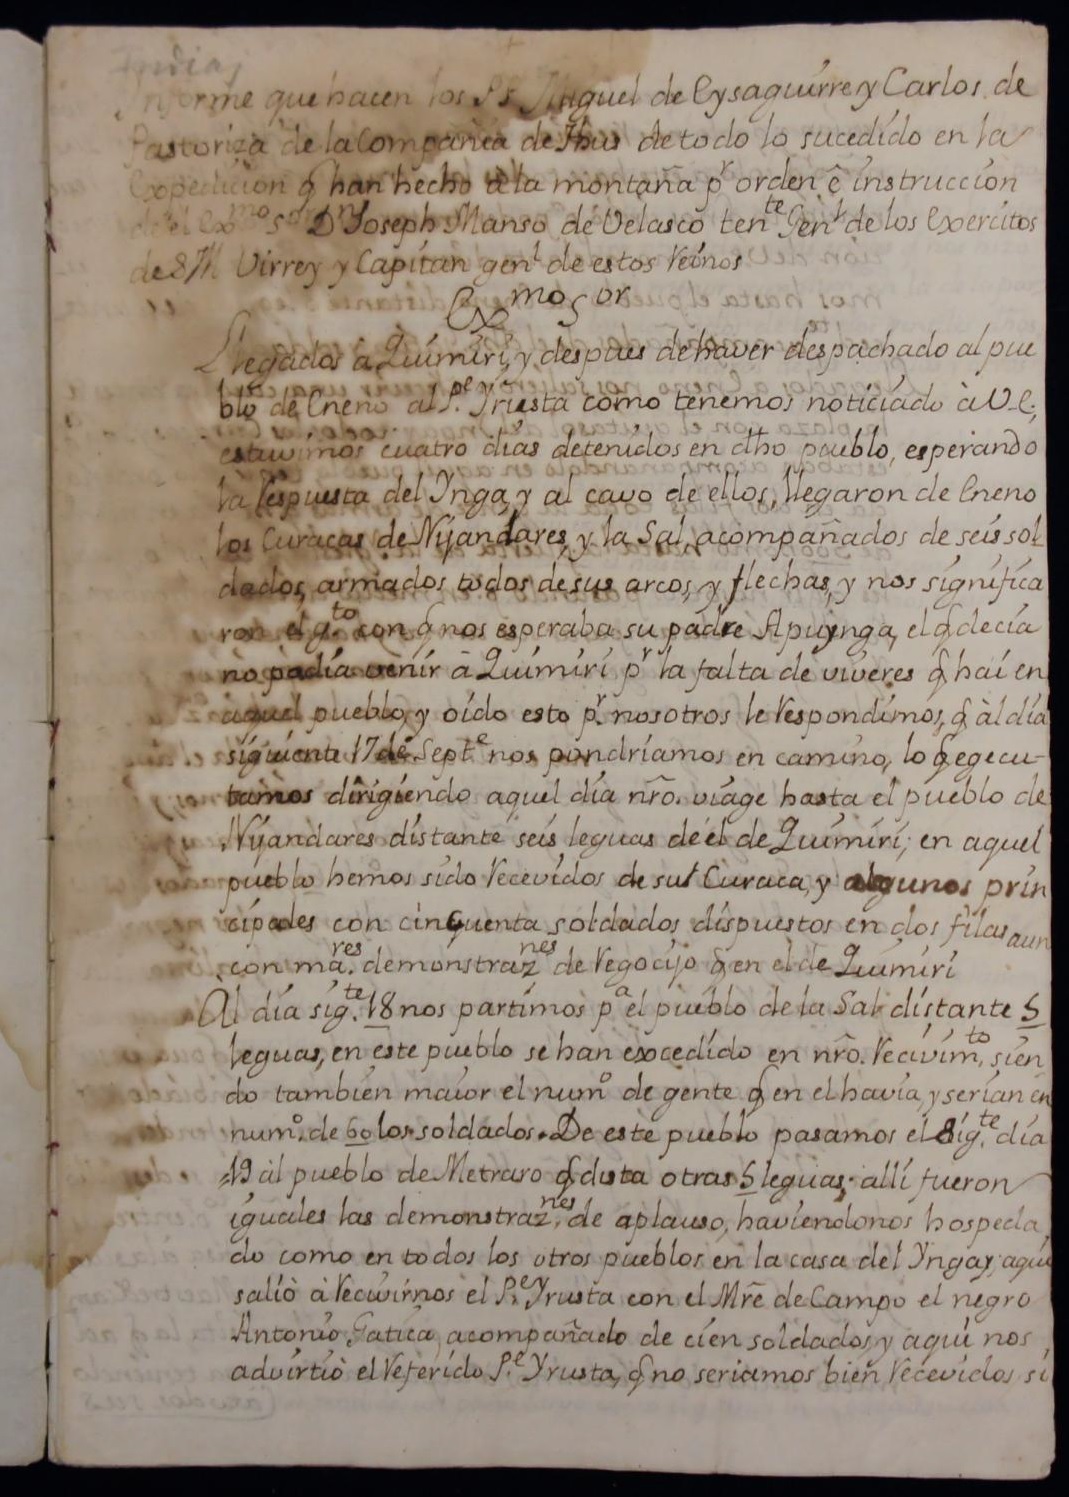 Indias
Informe que hacen los PPs Miguel de Eysaguirre y Carlos de
Pastoriza de la Compañia de Jhus de todo lo sucedido en la
Expedicion q̃ han hecho à la montaña pr orden è instruccion
de el Exmo Sor Dn Joseph Manso de Velasco tente Genl de los Exercitos
de S M. Virrey y Capitan genl de estos Reinos
Exmo Sor
Llegados à Quimiri, y despues de haver despachado al pue
blo de Eneno al Pe. Yrusta como tenemos noticiado à V. E.,
estuvimos cuatro dias detenidos en dho pueblo, esperando
la respuesta del Ynga, y al cavo de ellos, llegaron de Eneno
los Curacas de Nijandares, y la Sal, acompañados de seis sol-
dados, armados todos de sus arcos, y flechas, y nos significa
ron el gto. con q̃ nos esperaba su padre Apuynga, el q̃ decia
no podia venir à Quimiri pr la falta de viveres q̃ hai en
aquel pueblo, y oido esto pr nosotros le respondimos, q̃ àl dia
siguiente 17 de Septe nos pondriamos en camino, lo q̃ egecu-
tamos dirigiendo aquel dia nro. viage hasta el pueblo de
Nijandares distante seis leguas de el de Quimiri; en aquel
pueblo hemos sido recevidos de su Curaca, y algunos prin
cipales con cinquenta soldados dispuestos en dos filas aun
con mares. demonstraznes de regocijo q̃ en el de Quimiri
Al dia sigte. 18 nos partimos pa el pueblo de la Sal distante 5
leguas, en este pueblo se han excedido en nro. recivimto, sien
do tambien maior el numo de gente q̃ en el havia, y serian en
numo. de 60 los soldados. De este pueblo pasamos el sigte. dia
19 àl pueblo de Metraro q̃ dista otras 5 leguas; alli fueron
iguales las demonstraznes. de aplauso, haviendonos hospeda
do como en todos los otros pueblos en la casa del Ynga, y aqui
saliò à recivirnos el Pe. Yrusta con el Mrẽ de Campo el negro
Antonio Gatica, acompañado de cien soldados, y aqui nos
advirtiò el referido Pe. Yrusta, q̃ no seriamos bien recevidos si